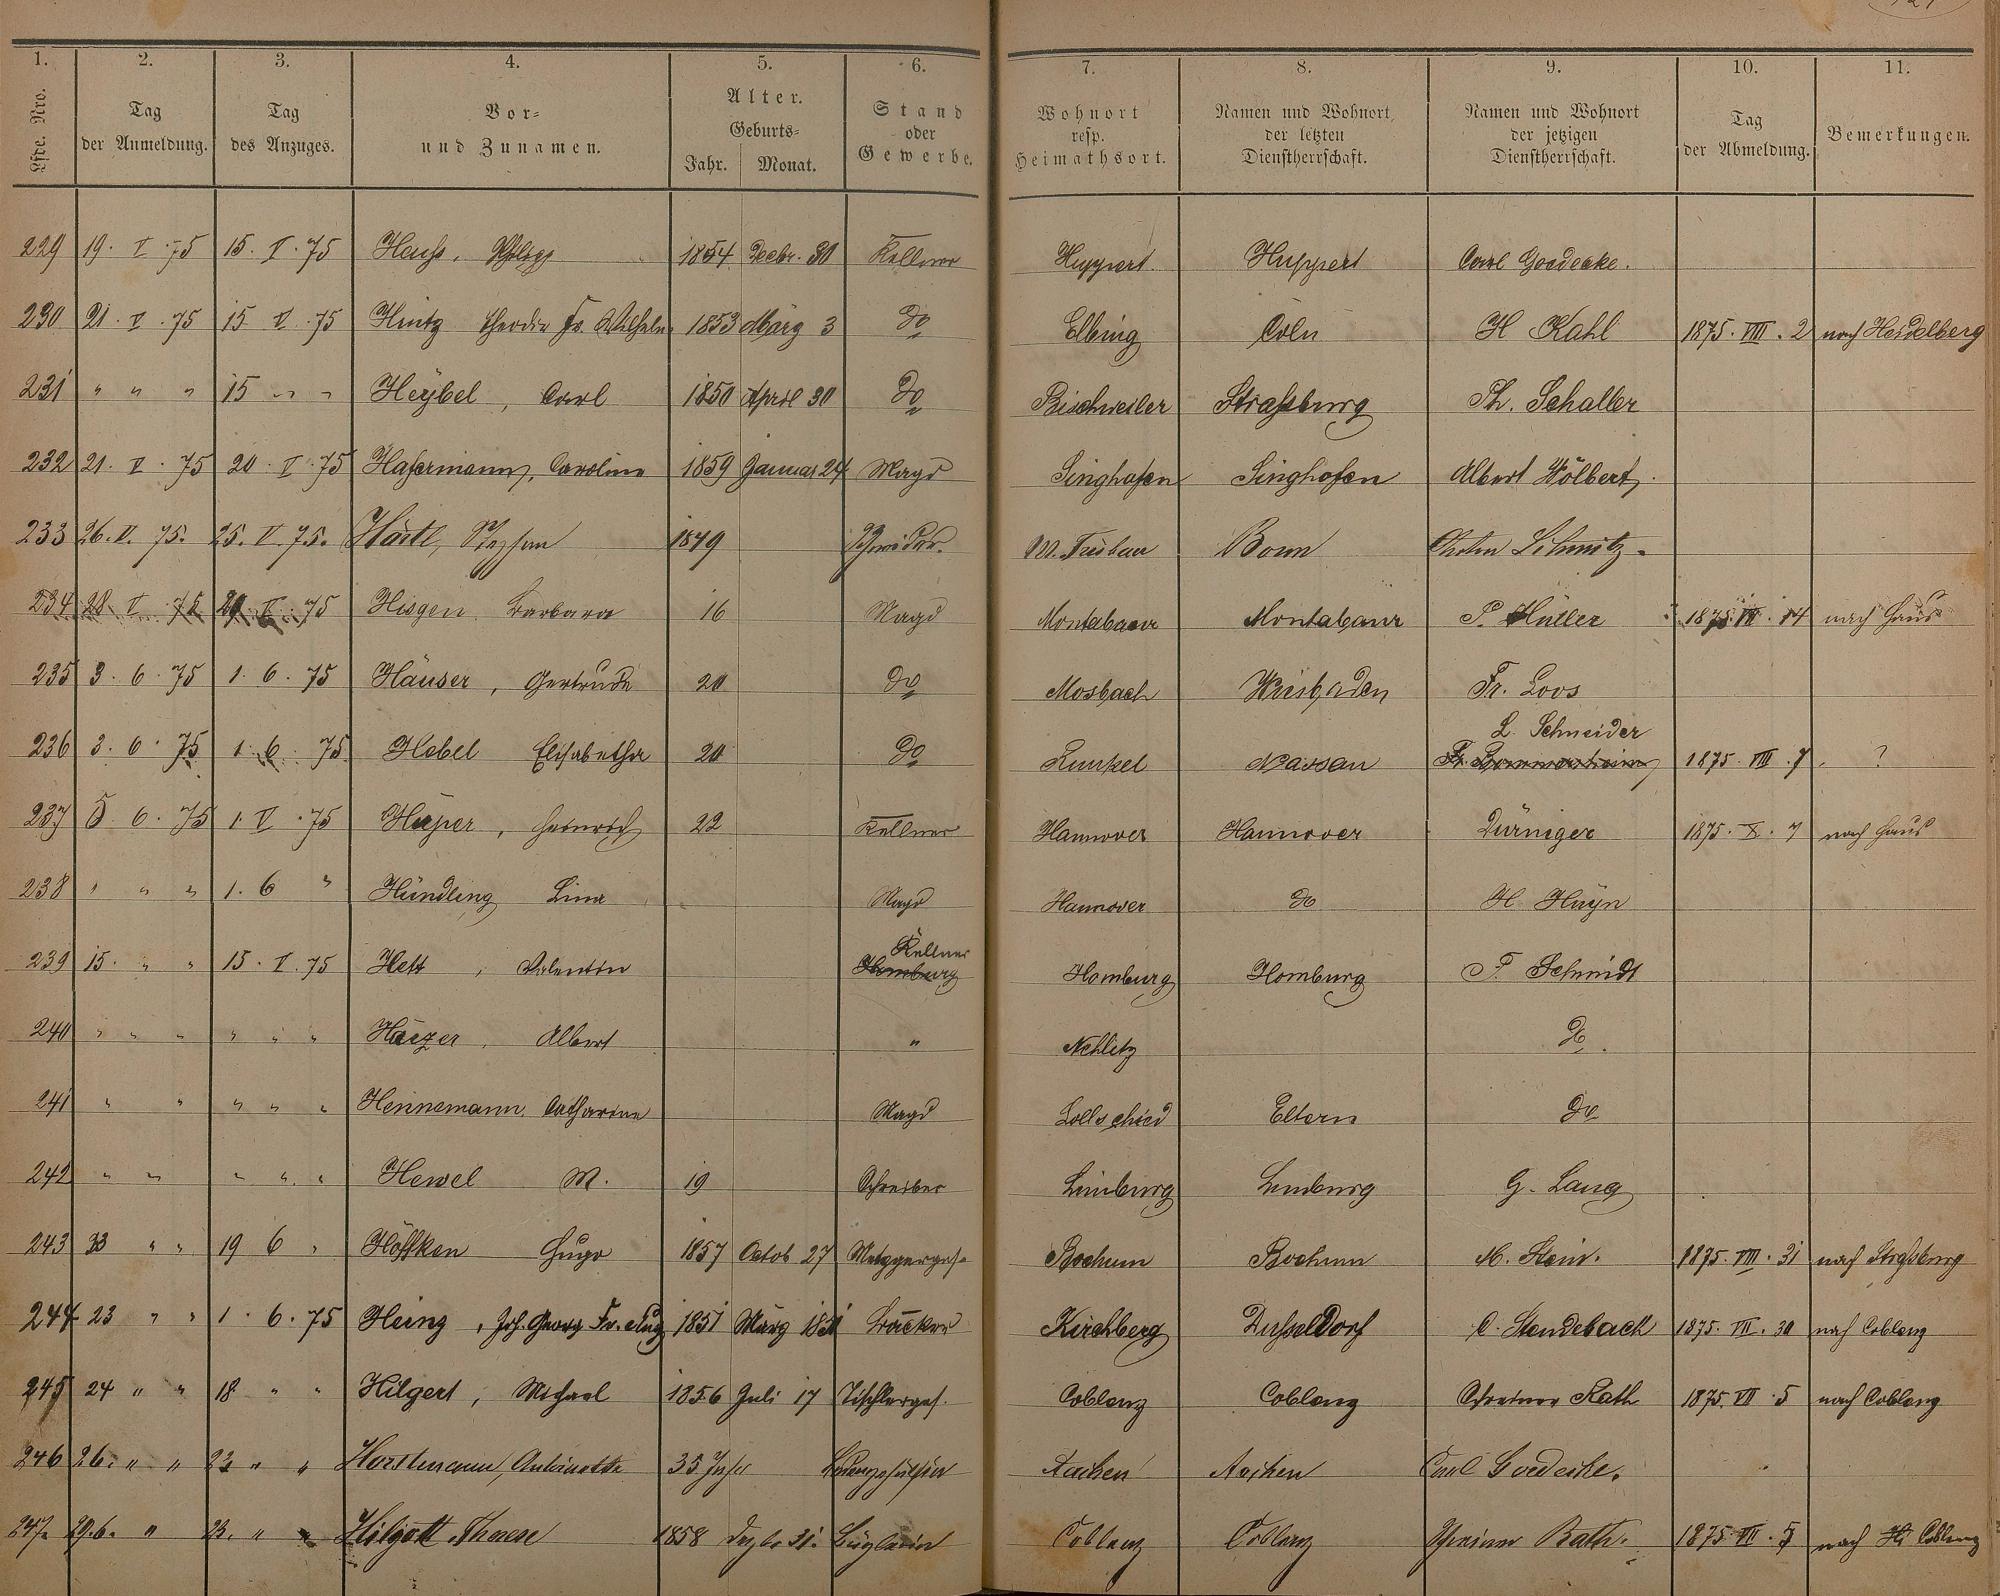 1. 2. 3. 4. 5. 6. 7. 8. 9. 10. 11.
Lfde. Nro. Tag der Anmeldung. Tag des Anzuges. Vor- und Zunamen. Alter. Geburts- Jahr. Monat. Stand oder Gewerbe. Wohnort resp. Heimathsort. Namen und Wohnort der letzten Dienstherrschaft. Namen und Wohnort der jetzigen Dienstherrschaft. Tag der Abmeldung. Bemerkungen.
229 19. V. 75 15. V. 75 1854 Decbr. 30 Kellner Huppert. Huppert Carl Goedecke.
230 21. V. 75 15 V. 75 Hintz Theodor Fr. Wilhelm 1853 März 3 do Elbing Cöln H Kahl 1875. VIII. 2 nach Heidelberg
231 " " " 15 " " Heÿbel, Carl 1850 April 30 do Bischweiler Straßburg Ph. Schaller
232 21. V. 75 20. V. 75 Hafermann, Caroline 1859 Januar 24 Magd Singhofen Singhofen Albert Wölbert.
233 26. V. 75. 25. V. 75. Härtl, Stephan 1849 Schneider. M. Trübau Bonn Schmitz.
234 28. V. 75 V. 75 Hisgen Barbara 16 Magd Montabaur Montabaur P. Hütler 1875. VII. 14 nach Haus
235 3. 6. 75 1. 6. 75 Häuser, Gertrude 20 do Mosbach Wiesbaden Fr. Loos
236 3. 6. 75 1. 6. 75 Hebel Elisabetha 20 do Runkel Nassau L. Schneider 1875. VIII. 7. ?
237 5 6. 75 1. V. 75 Heinrich 22 Kellner Hannover Hannover Dürniger 1875. X. 7 nach Haus
238 " " " 1. 6 " Hündling Lina Magd Hannover do H Huÿn
239 15. " " 15. V. 75 Hett, Valentin Kellner Homburg Homburg Homburg F. Schmidt
240 " " " " " " Albert " Nehlitz do.
241 " " " " " Hennemann Catharine Magd Lollschied Eltern do
242 " " " " " Hewel M. 19 Schreiber Limburg Limburg G. Lang
243 " " 19 6 " Höffken Hugo 1857 Octob 27 Metzgerges. Bochum Bochum M. Stein. 1875. VIII. 31 nach Straßburg
244 23 " " 1. 6. 75 Heinz, Joh. Georg Fr. Aug 1851 März 1851 Bäcker Kirchberg Düsseldorf C. Stendebach 1875. VII. 30 nach Coblenz
245 24 " " 18 " " Hilgert, Michael 1856 Juli 17 Tischlerges. Coblenz Coblenz Schreiner Rath 1875. VII. 5 nach Coblenz
246 26. " " 23 " " Horstmann, Antoinette 35 Jahr Ladengehülfin Aachen Aachen Carl Goedecke.
247. 29.6. " 23. " " Hilgott Therese 1858 Dezbr 31. Büglerin Coblenz Coblenz Schreiner Rath. 1875. VII. 5 nach Coblenz